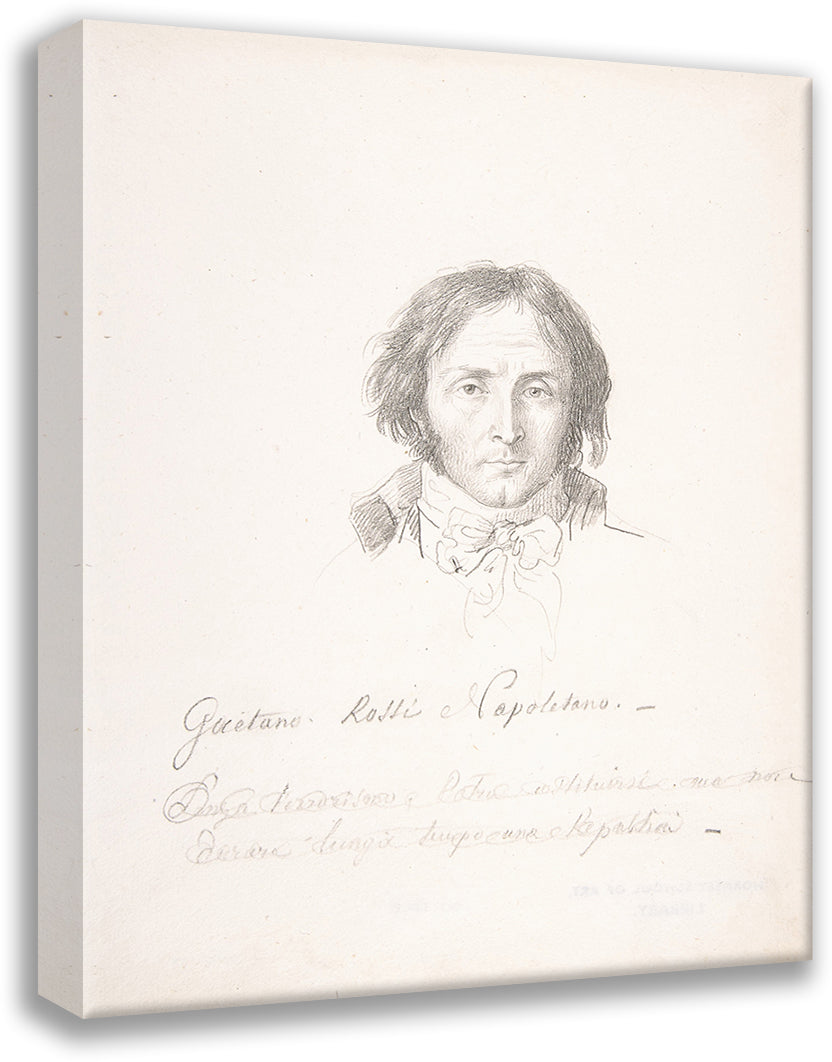 Gaetano Rossi Napoletano. —
Senza Terrorismo potrà costituirsi. ma non
durare lungo tempo una Republica —
LIBRARY.